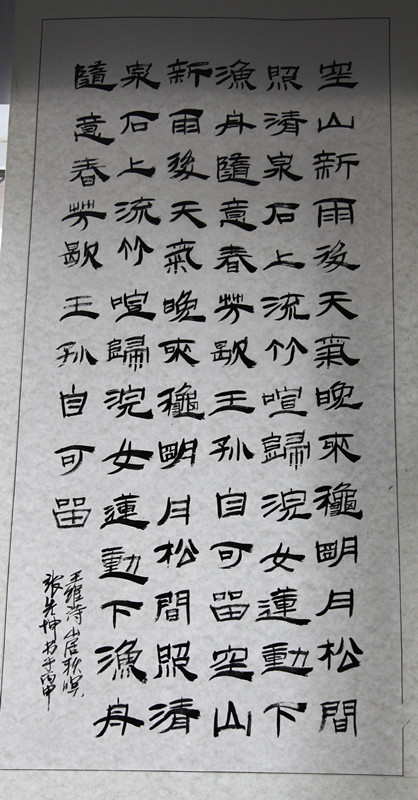 空山新雨後天氣晚來龝朙月松間
照清泉石上流竹喧歸浣女蓮動下
漁舟隨意春芳歇王孙自可留空山
新雨後天氣晚來龝朙月松間照清
泉石上流竹喧歸浣女蓮動下漁舟
隨意春芳歇王孙自可留
王維诗山居秋暝
张先坤书于丙申